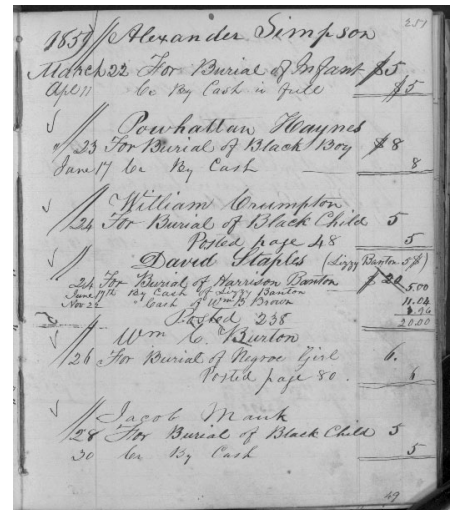 251
1851 // Alexander Simpson
March 22 For Burial of Infant $5
Apl 11 Cr By Cash in full $5
// Powhattan Haynes
" 23 For Burial of Black Boy $8
June 17 Cr By Cash 8
// William Crumpton
24 For Burial of Black Child 5
Posted page 48 5
// David Staples (Lizzy Banton 5$)
24 For Burial of Harrison Banton $20
June 17th By Cash of Lizzy Banton 5.00
Nov 22 " Cash of Wm B Brown 11.04
3.96
Posted 238 20.00
// Wm C. Burton
26 For Burial of Negroe Girl 6.
Posted page 80. 6
// Jacob Mauk
28 For Burial of Black Child 5
30 Cr By Cash 5
49